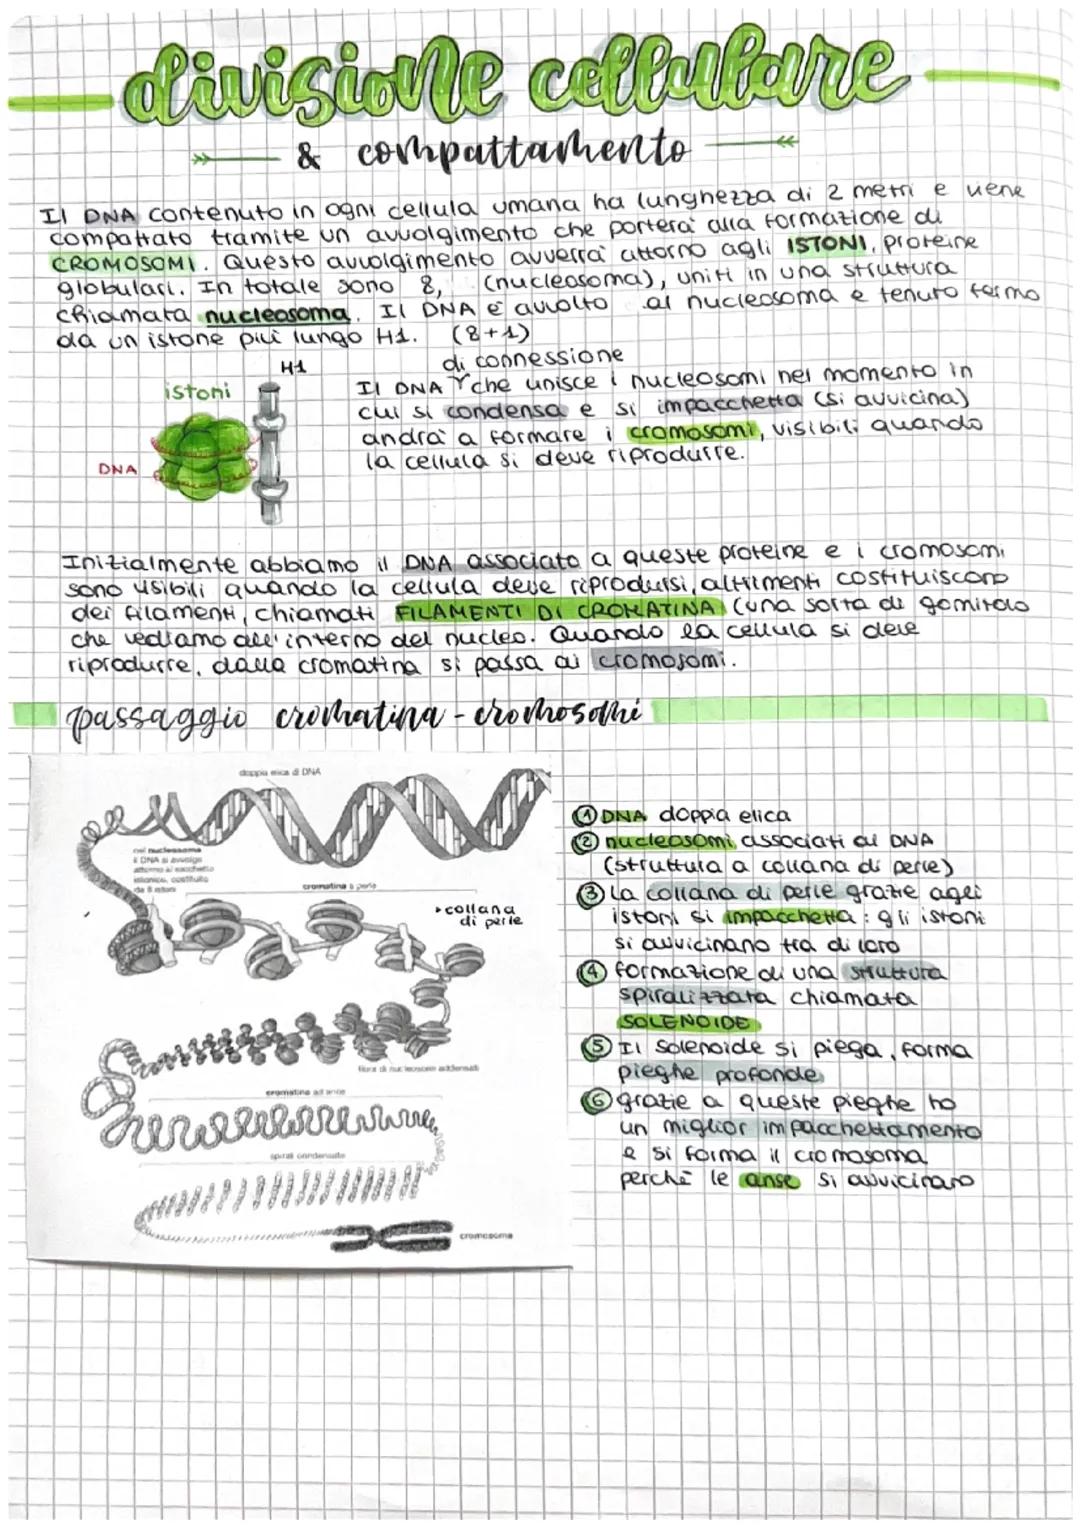 divisione cellulare
& compattamento
Il DNA contenuto in ogni cellula umana ha lunghezza di 2 metri e viene
compattato tramite un avvolgimento che porterà alla formazione di
CROMOSOMI. Questo avvolgimento avverrà attorno agli ISTONI, proteine
globulari. In totale sono 8, (nucleosoma), uniti in una struttura
chiamata nucleosoma. Il DNA è avvolto al nucleosoma e tenuto fermo
da un istone più lungo H1. (8+1)
H1
istoni
DNA
di connessione
Il DNA che unisce i nucleosomi nel momento in
cui si condensa e si impacchetta (si avvicina)
andrà a formare i cromosomi, visibili quando
la cellula si deve riprodurre.
Inizialmente abbiamo il DNA associato a queste proteine e i cromosomi
sono visibili quando la cellula deve riprodursi, altrimenti costituiscono
dei filamenti, chiamati FILAMENTI DI CROMATINA (una sorta di gomitolo
che vediamo all'interno del nucleo. Quando la cellula si deve
riprodurre, dalla cromatina si passa ai cromosomi.
passaggio cromatina - cromosomi
doppia elica di DNA
nel nucleosoma
il DNA si avvolge
attorno al sacchetto
istonico, costituito
da 8 istoni
cromatina a perle
collana
di perle
fibra di nucleosomi addensati
cromatina ad anse
spirali condensate
cromosoma
① DNA doppia elica
② nucleosomi associati al DNA
(struttura a collana di perle)
③ La collana di perle grazie agli
istoni si impacchetta: gli istoni
si avvicinano tra di loro
④ formazione di una struttura
spiralizzata chiamata
SOLENOIDE
⑤ Il solenoide si piega, forma
pieghe profonde
⑥ grazie a queste pieghe ho
un miglior impacchettamento
e si forma il cromosoma
perchè le anse si avvicinano